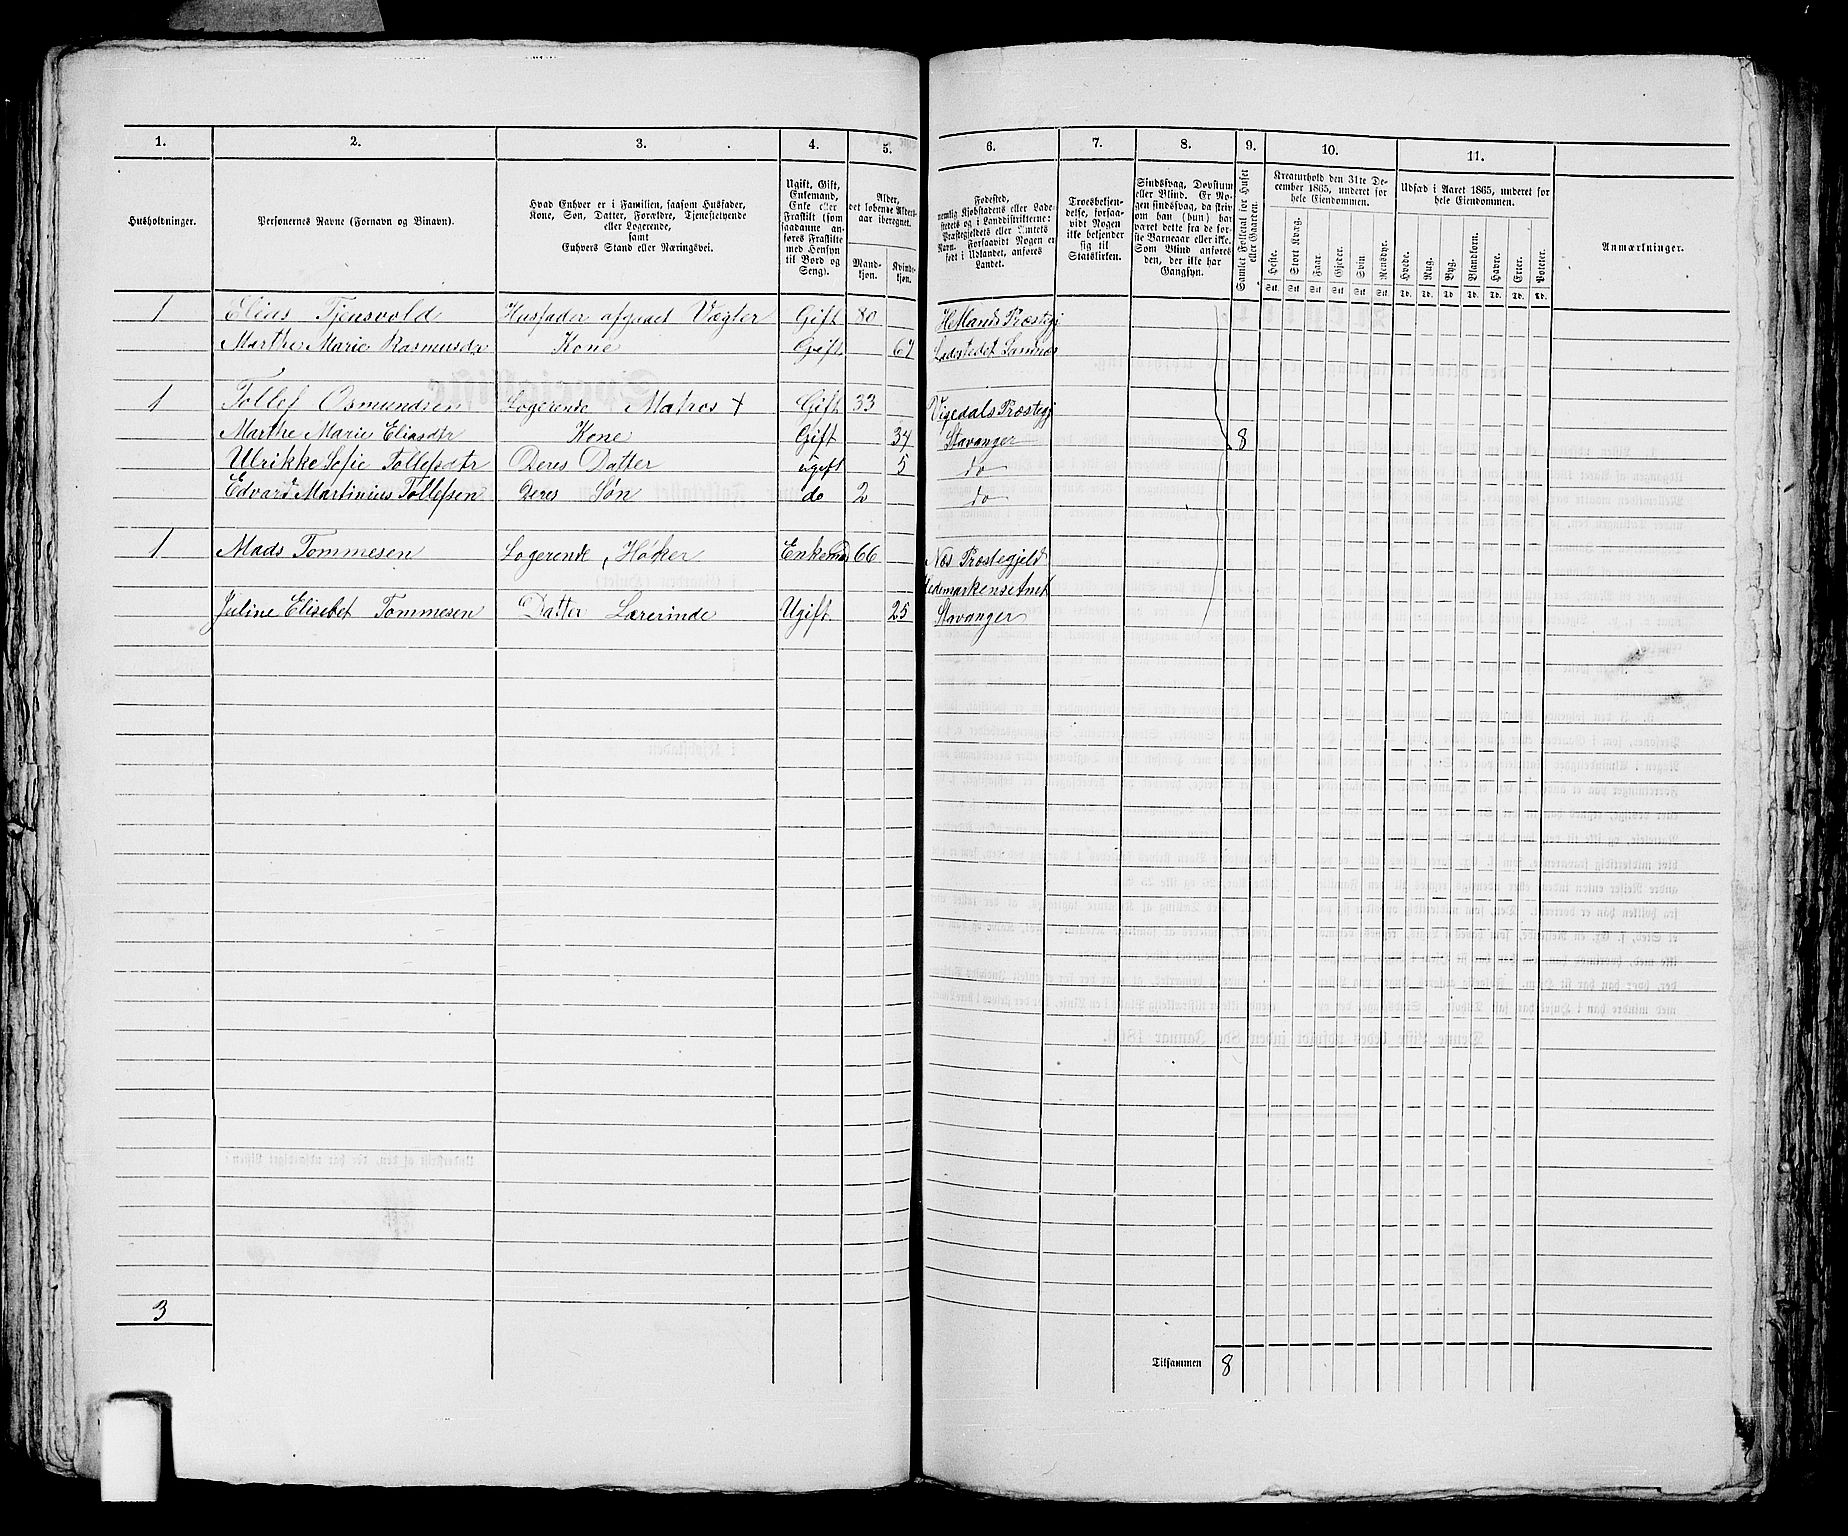 1. 2. 3. 4. 5. 6. 7. 8. 9. 10. 11.
Husholdninger.
Personernes Navne (Fornavn og Binavn).
Hvad Enhver er i Familien, saasom Husfader,
Kone, Søn, Datter, Forældre, Tjenestetyende
eller Logerende,
samt
Enhvers Stand eller Næringsvei.
Ugift, Gift,
Enkemand,
Enke eller
Fraskilt (som
saadanne an-
føres Fraskilte
med Hensyn
til Bord og
Seng).
Alder,
det løbende Alders-
aar iberegnet.
Mand-
kjøn.
Kvinde-
kjøn.
Fødested,
nemlig Kjøbstadens eller Lade-
stedets og i Landdistrikterne:
Præstegjeldets eller Amtets
Navn. Forsaavidt Nogen er
født i Udlandet, anføres
Landet.
Troesbekjen-
delse, forsaa-
vidt Nogen
ikke bekjender
sig til
Statskirken.
Sindssvag, Døvstum
eller Blind. Er No-
gen sindssvag, da skriv
om han (hun) har
været dette fra de før-
ste Barneaar eller ikke.
Som Blind anføres
den, der ikke har
Gangsyn.
Samlet Folketal for Huset
eller Gaarden.
Kreaturhold den 31te De-
cember 1865, underet for
hele Eiendommen.
Heste. Stort Kvæg. Faar. Gjeder. Svin. Rensdyr.
Stk. Stk. Stk. Stk. Stk. Stk.
Udsæd i Aaret 1865, underet for
hele Eiendommen.
Hvede. Rug. Byg. Blandkorn. Havre. Erter. Poteter.
Td. Td. Td. Td. Td. Td. Td.
Anmærkninger.
1 Elias Tjensvold Husfader afgaaet Vægter Gift 80 Hetlands Præstegj
Marthe Marie Rasmusdr Kone Gift 67 Ladestedet Sandnæs
1 Tollef Osmundsen Logerende Matros + Gift 33 Vigedals Præstegj
Marthe Marie Eliasdtr Kone Gift 34 Stavanger 8
Ulrikke Sofie Tollefsdtr Deres Datter ugift 5 do
Edvard Martinius Tollefsen Deres Søn do 2 do
1 Mads Tommesen Logerende, Høker Enkemd 66 Næs Præstegjeld
Hedemarkens Amt
Juline Elisebet Tommesen Datter Lærerinde Ugift. 25 Stavanger
3
Tilsammen 8